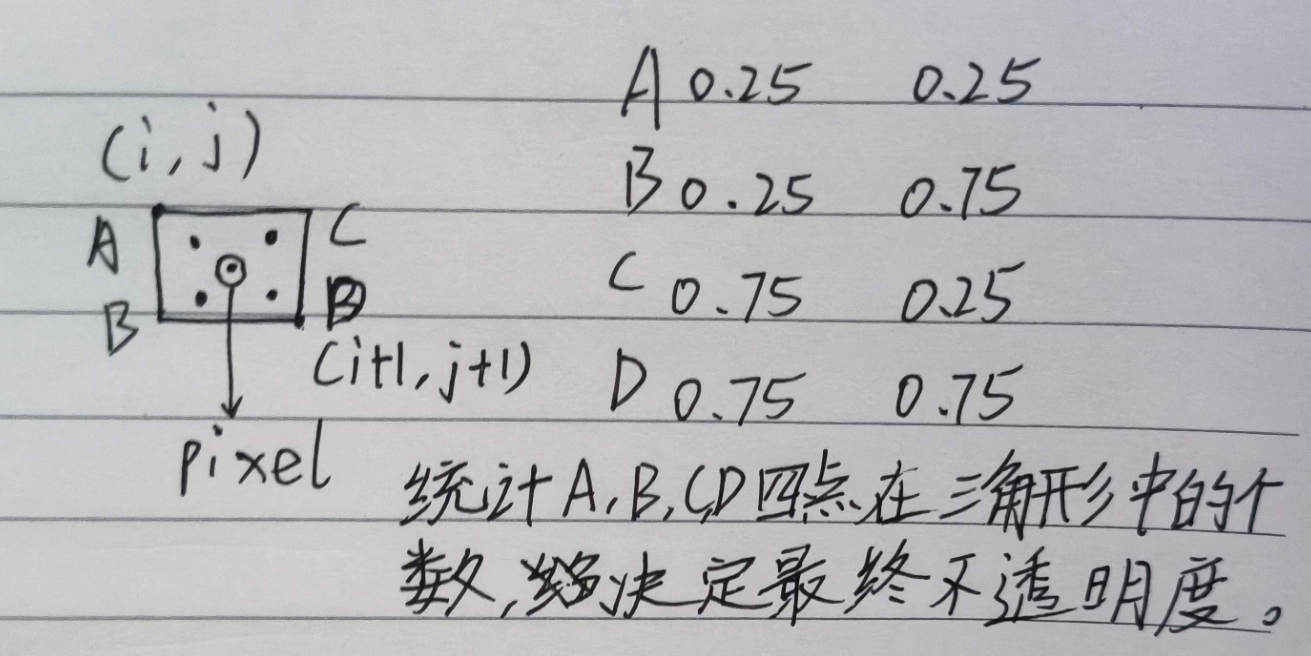 A 0.25 0.25
(i, j)
B 0.25 0.75
A C
C 0.75 0.25
B D
(i+1, j+1)
D 0.75 0.75
pixel
统计A,B,C,D四点在三角形中的个
数,决定最终不透明度。